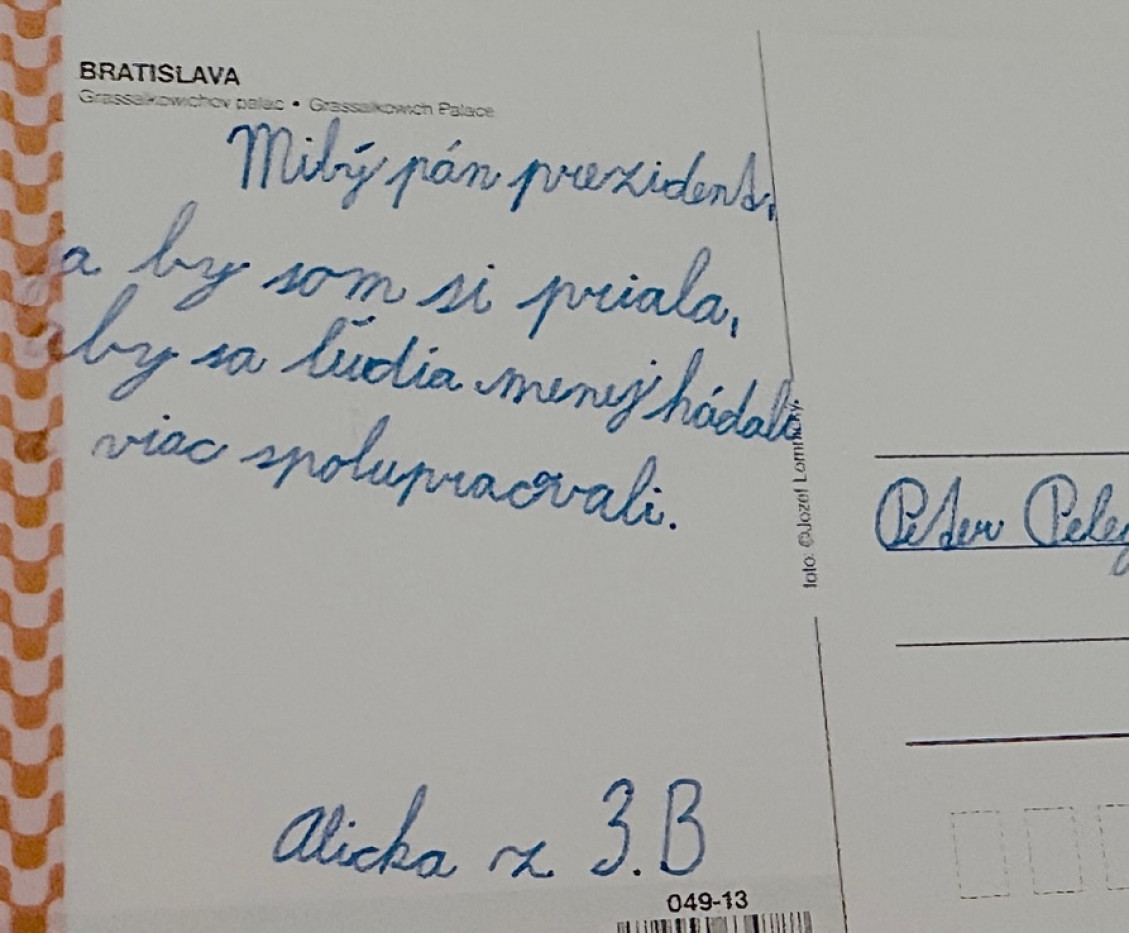 BRATISLAVA
Grassalkowichov palác • Grassalkowich Palace
Milý pán prezident,
ja by som si priala,
aby sa ľúdia menej hádali
viac spolupracovali.
foto: ©Jozef Lomnický.
Peter
Alicka z 3.B
049-13